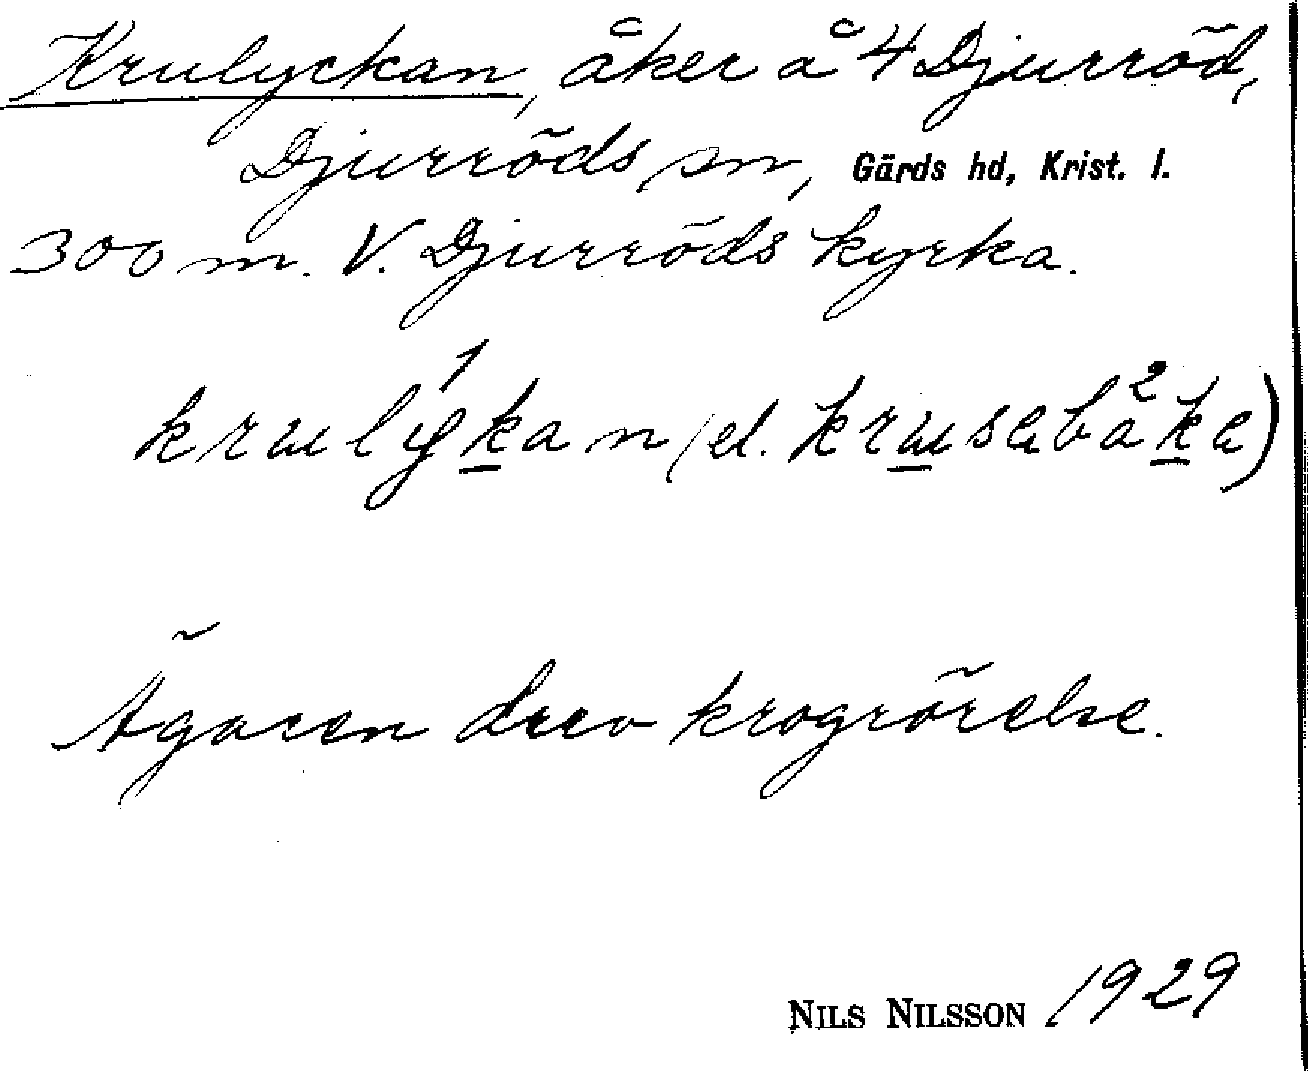 Krulyckan, åker å 4 Djurröd,
Djurröds sn, Gärds hd, Krist. l.
300 m. V. Djurröds kyrka.
krulýkan (el. krusabåka)
Ägaren drev krogrörelse.
NILS NILSSON 1929